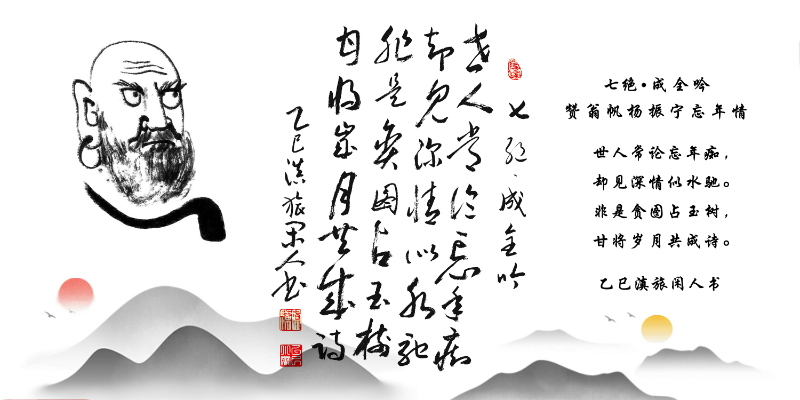 七绝·成全吟
世人常论忘年痴
却见深情似水驰
非是贪图占玉树
甘将岁月共成诗
乙巳滇旅闲人书
七绝·成全吟
赞翁帆杨振宁忘年情
世人常论忘年痴，
却见深情似水驰。
非是贪图占玉树，
甘将岁月共成诗。
乙巳滇旅闲人书